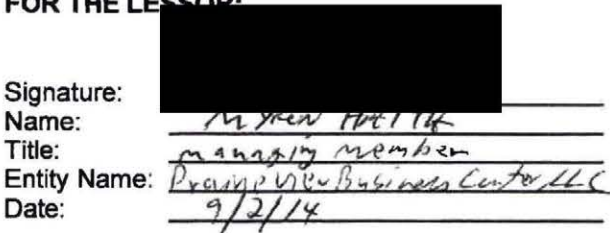 FOR THE LESSOR:
Signature:
Name: Myren
Title: managing member
Entity Name: Prairie View Business Center, LLC
Date: 9/2/14